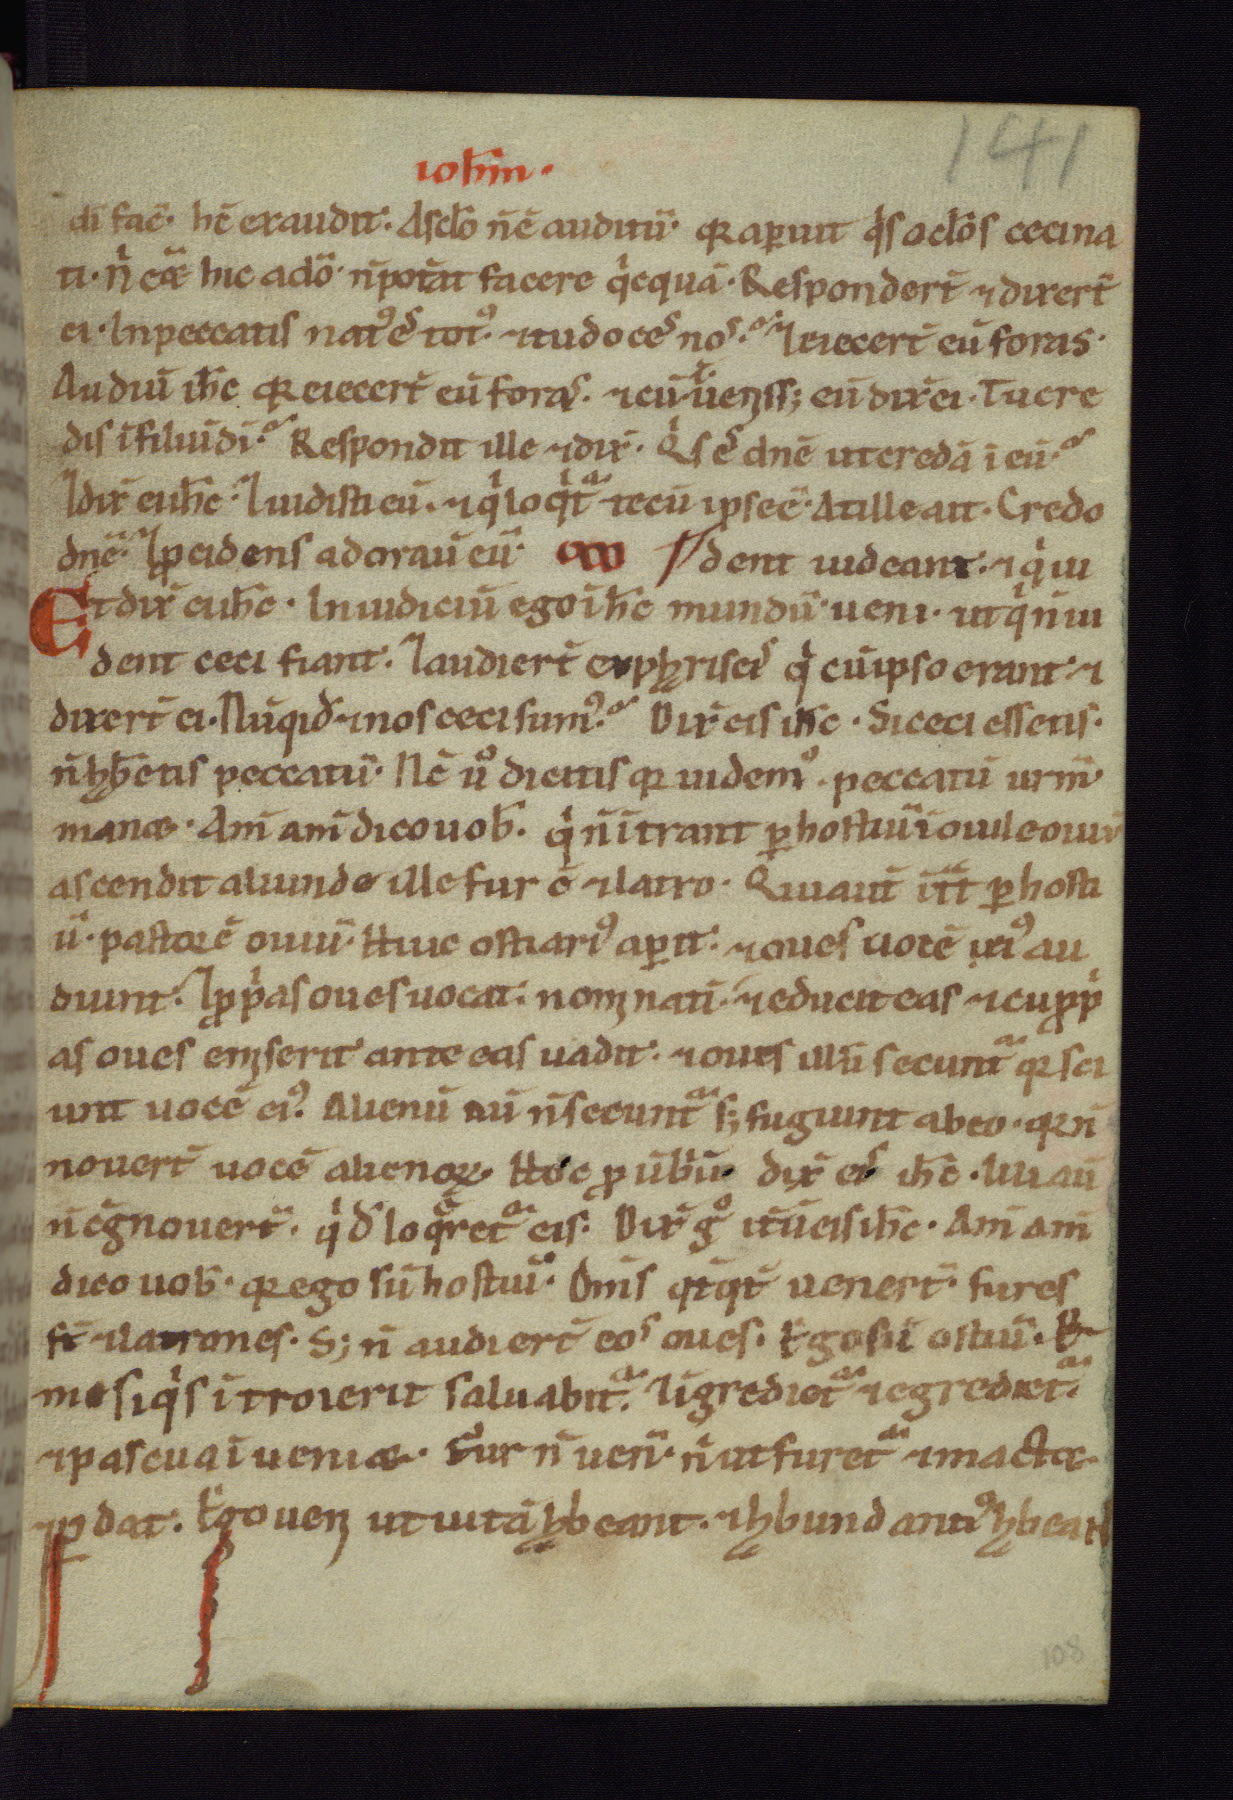 141
ioh̄m·
di fac̄· hc̄ exaudit· Asclo n̄ ē auditū· qꝛ aꝑuit qi̇s oclo̅s ceci na
ti· n̄ cēt hic a do̅· n̄ pot̄at facere qi̇cquā· Responder̄t ⁊dixer̄t
ei· In peccatis natꝰ es totꝰ· ⁊tu doces nos· ⁊eiecer̄t eū foras·
Audiū ih̄c qꝛ eiecer̄t eū foras· ⁊cū ūenīss; eū dix̄ ei· Tu cre
dis ī filiū di̅· Respondit ille ⁊dix̄· Qi̇s ē dn̄e ut credā ī eū·
⁊dix̄ ei ih̄c· ⁊uidisti eū· ⁊qi̇ loqi̇t̄ tecū ipse ē· At ille ait· Credo
dn̄e· ⁊ꝓcidens adorau̅ eū· dent uideant· ⁊qi̇ ui
Et dix̄ ei ih̄c· In iudiciū ego ī hc̄ mundū ueni· ut qi̇ n̄ ui
dent ceci fiant· ⁊audier̄t ex pharisei̇s qi̇ cū ipso erant ⁊
dixer̄t ei· Nūqid ⁊nos ceci sumꝰ· Dix̄ eis ih̄c· Si ceci essetis·
n̄ hab̄etis peccatū· Nc̄ ūo dicitis qꝛ uidemꝰ· peccatū ur̄m
manet· Am̄ am̄ dico uob̄· qi̇ n̄ ītrant ꝑ hostiū ī ouile ouiū
ascendit aliunde ille fur ē ⁊latro· Qui aut̄ īt̄t ꝑ hosti
ū· pastor ē ouiū· Huic ostiariꝰ aꝑit· ⁊oues uocē eiꝰ au
diunt· ⁊ꝓpi̇as oues uocat· nomīnatī· ⁊educit eas ⁊cū ꝓpi̇
as oues emiserit ante eas uadit· ⁊oues illū secunt̄ qꝛ sci
unt uocē eiꝰ· Alienū aū n̄ secunt̄ s; fugiunt ab eo· qꝛ n̄
nouer̄t uocē alienoꝝ· Hoc ꝓūbiū dix̄ eis ih̄c· Illi aū
n̄ cḡnouer̄t· qi̇d loqr̄et̄ eis· Dix̄ gͦ it̄ū eis ih̄c· Am̄ am̄
dico uob̄· qꝛ ego sū hostiū· Om̄s qt̄qt̄ uener̄t· fures
st̄ ⁊latrones· S; n̄ audier̄t eos oues· Ego sū ostiū· Ꝑ
me siqi̇s īntroierit saluabit̄· ⁊īgrediet̄ ⁊egrediet̄·
⁊pascua īueniet· Fur n̄ uen̄· n̄ ut furet̄ ⁊mactet
⁊ꝑdat· Ego ueni ut uitā habeant· ⁊habundantiꝰ habeant
108